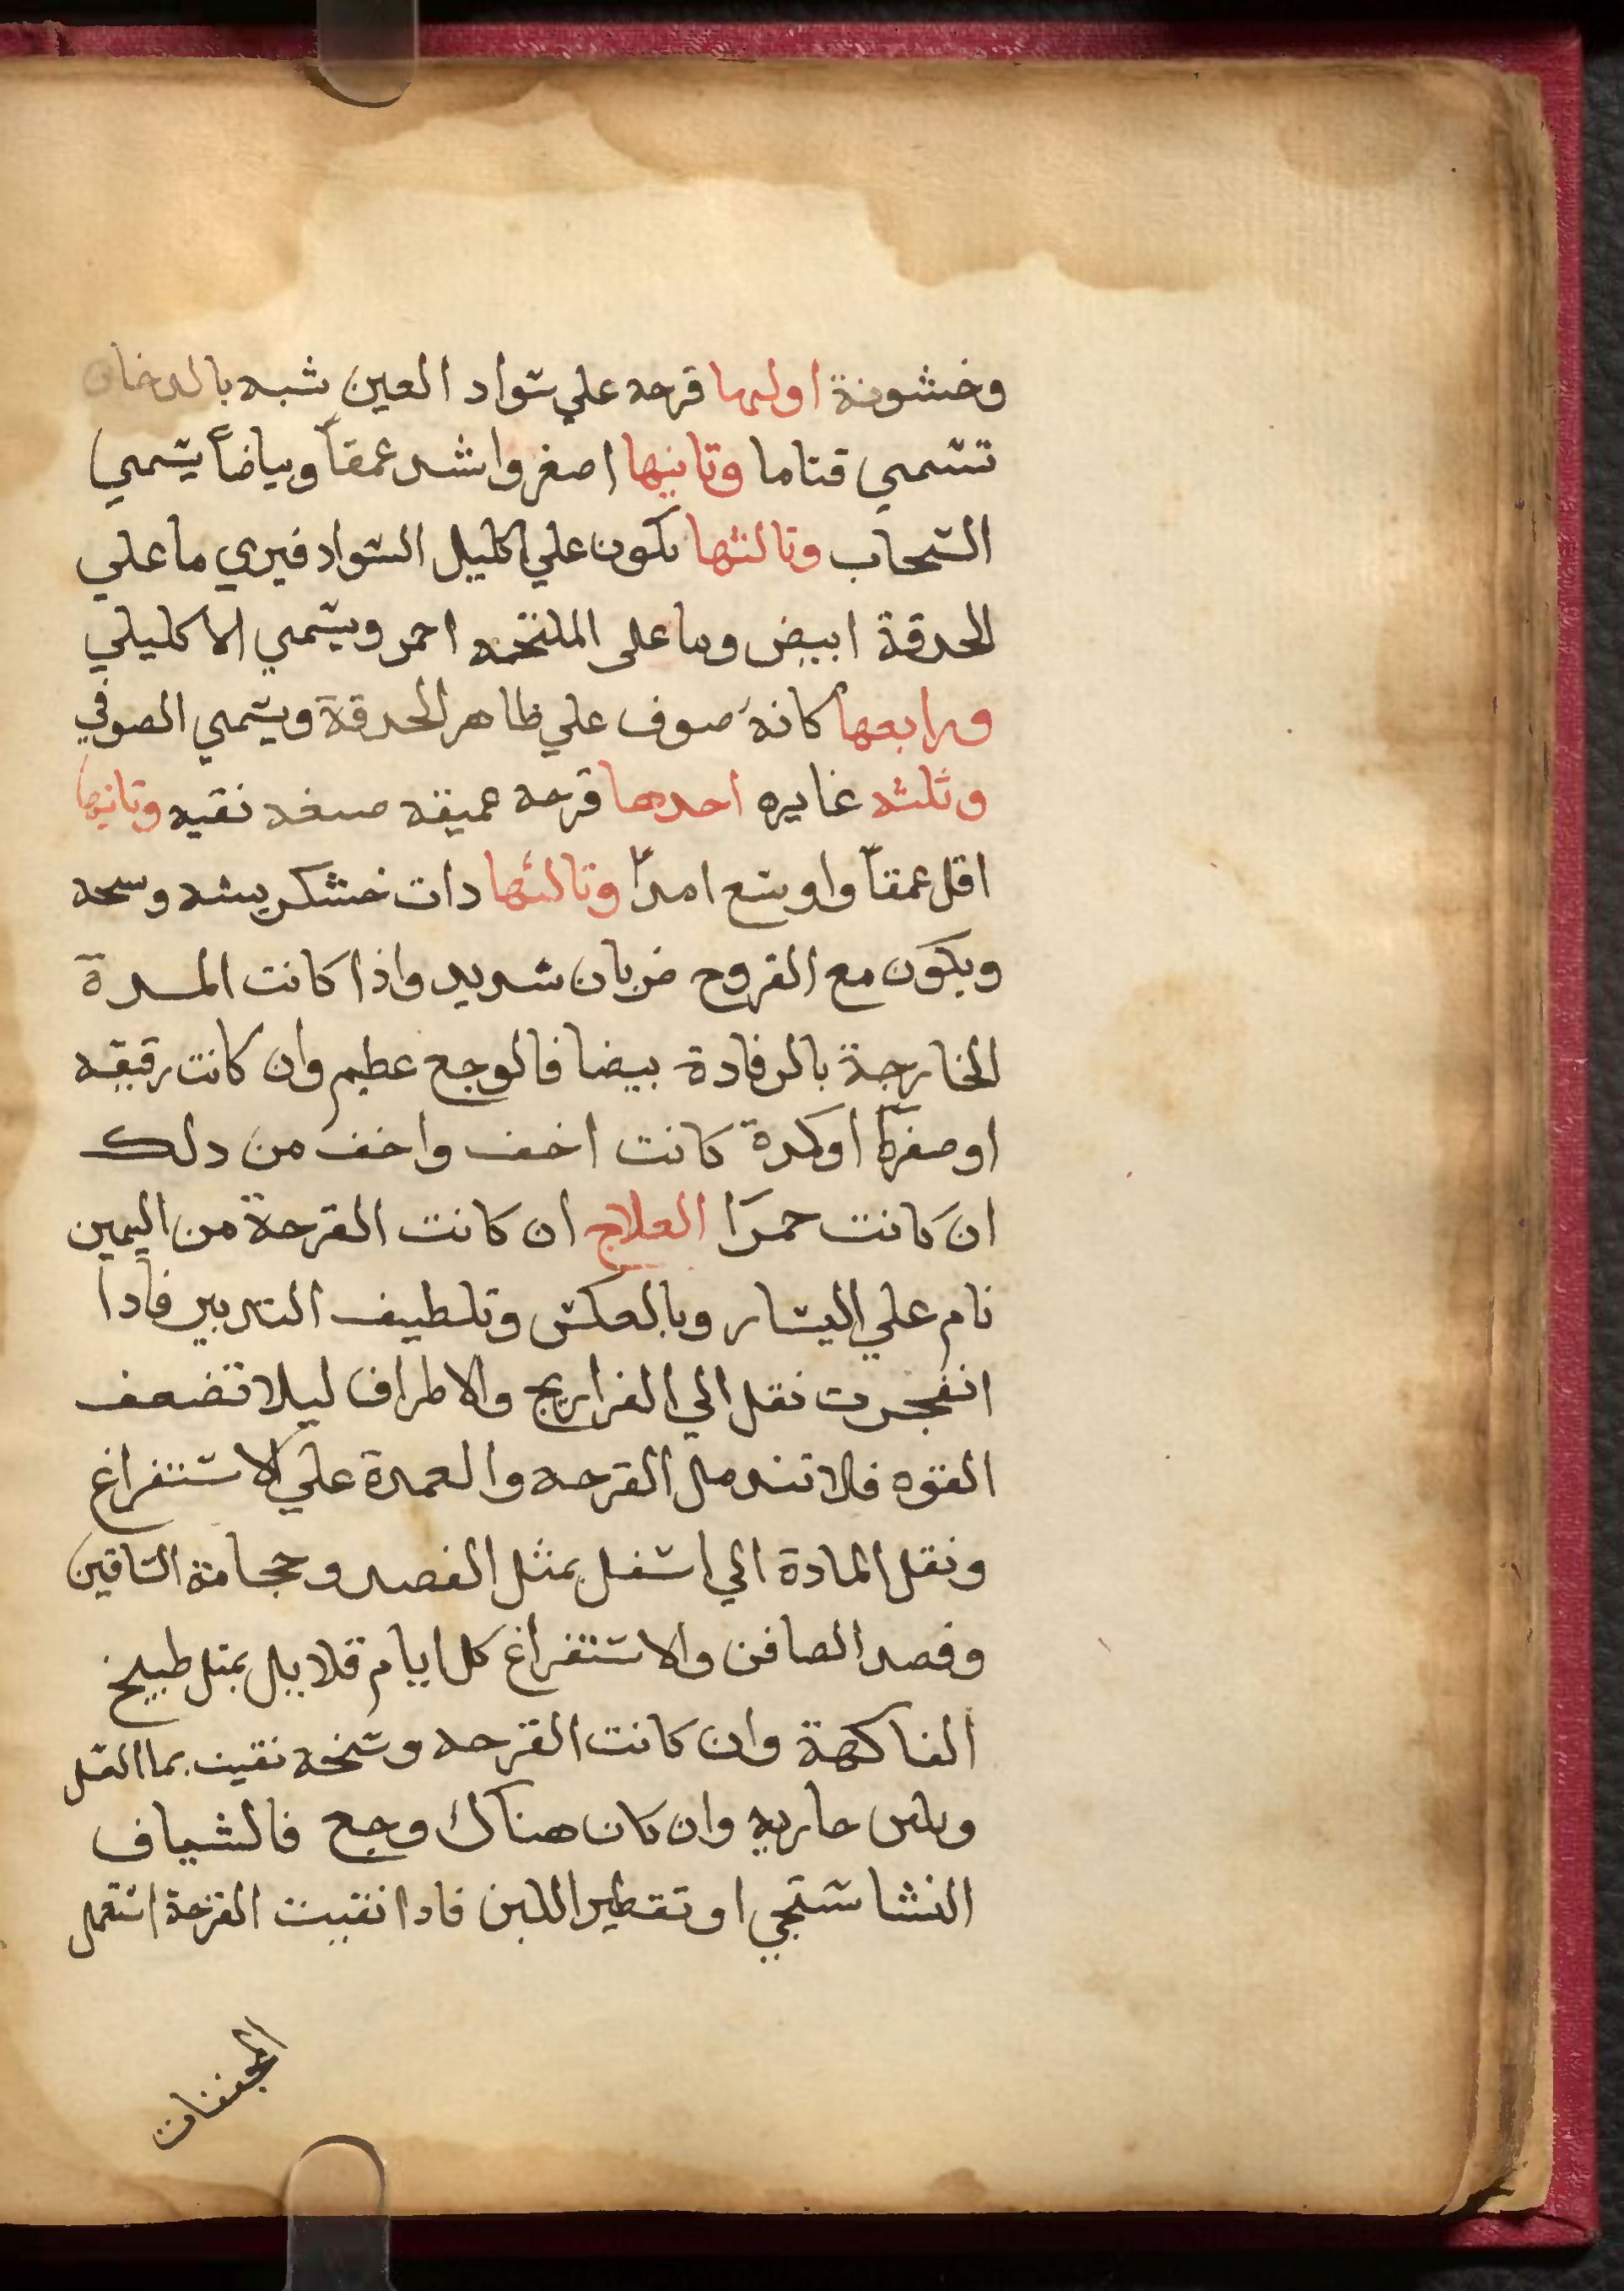 وخشونة اولها قرحه علي سواد العين شبه بالدخان
تسمي قتاما وتانيها اصغر واشد عمقاً وبياضاً يسمي
السحاب وتالثها تكون علي اكليل السواد فيري ما علي
الحدقة ابيض وما على الملتحمه احمر ويسمي الاكليلي
ورابعها كانه صوف علي ظاهر الحدقة ويسمي الصوفي
وثلثه غايره احدها قرحه عميقه ضيقه نقيه وتانيها
اقل عمقاً واوسع امداً وتالثها دات خشكريشه وسخه
ويكون مع القروح ضربان شديد واذا كانت المدة
الخارجة بالرفادة بيضا فالوجع عظيم وان كانت رقيقه
او صفرآ او كدرة كانت اخف واخف من دلك
ان كانت حمرا العلاج ان كانت القرحة من اليمين
نام علي اليسار وبالعكس وتلطيف التدبير فادا
انفجرت نقل الي الفراريج والاطراف ليلا تضعف
القوه فلا تندمل القرحه والعمدة علي الاستفراغ
ونقل المادة الي اسفل بمثل الفصد وحجامة الساقين
وفصد الصافن والاستفراغ كل ايام قلايل بمتل طبيخ
الفاكهة وان كانت القرحه وسخه نقيت بما العسل
وبلبن جاريه وان كان هناك وجع فالشياف
النشاستجي او تقطير اللبن فادا نقيت القرحة استعمل
المجففات